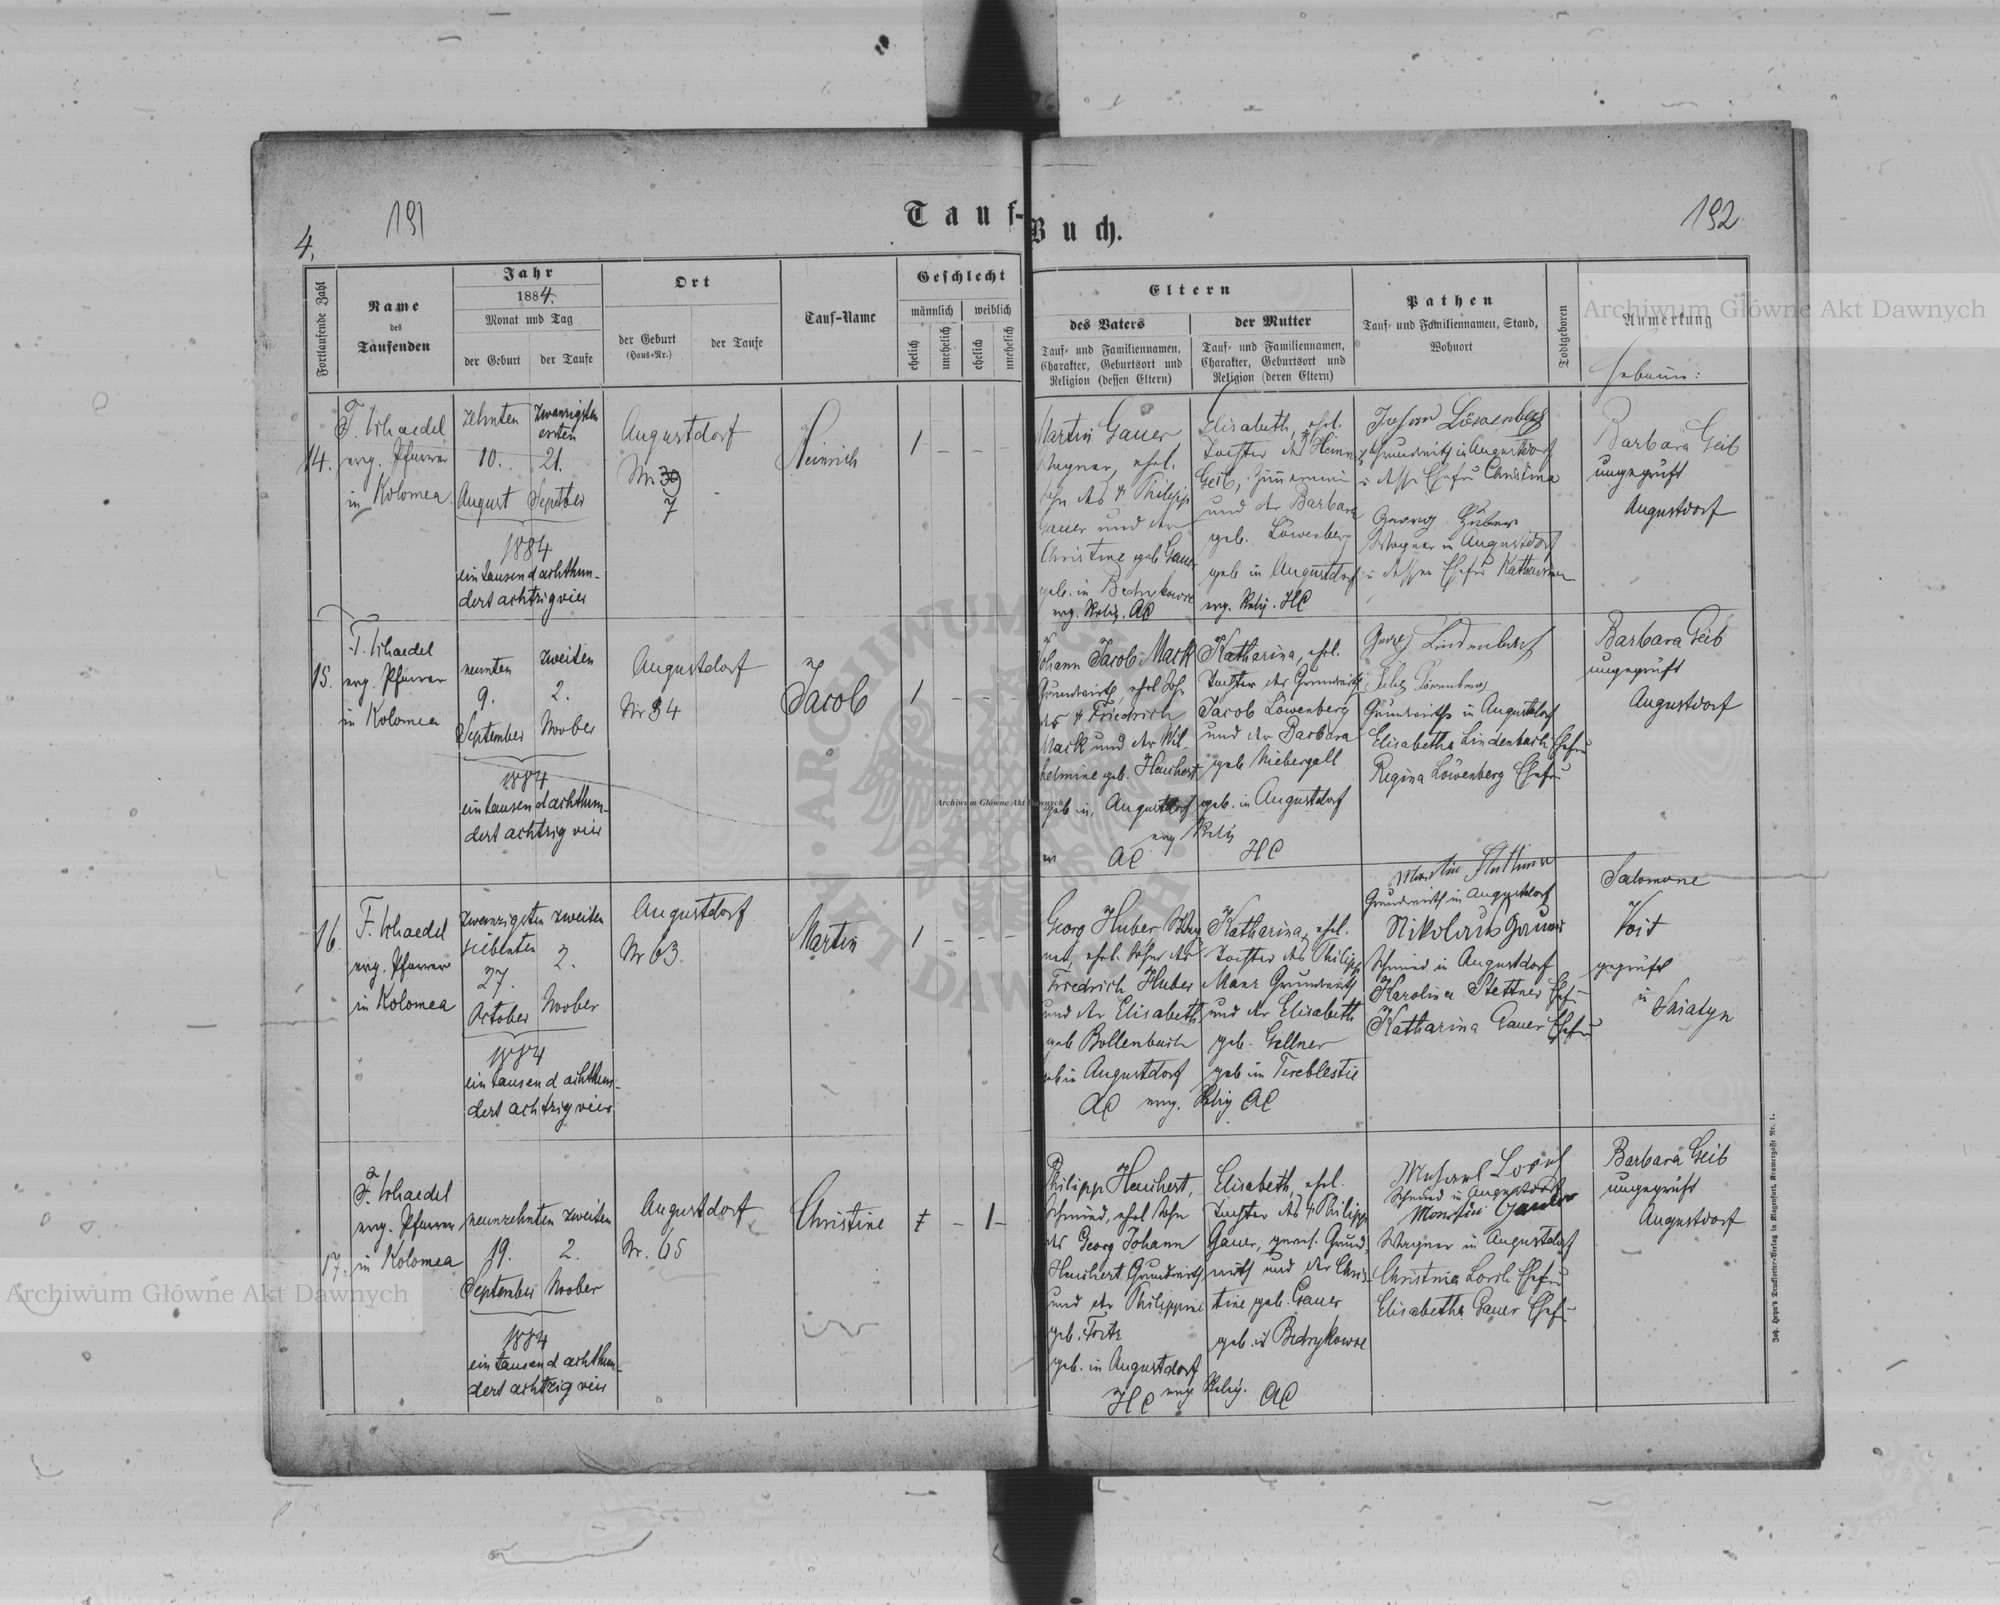 4.
191
Tauf-
Buch.
192
Fortlaufende Zahl
Name
des
Taufenden
Jahr
1884.
Monat und Tag
der Geburt
der Taufe
Ort
der Geburt
(Haus-Nr.)
der Taufe
Tauf-Name
Geschlecht
männlich
weiblich
ehelich
unehelich
ehelich
unehelich
Eltern
des Vaters
Tauf- und Familiennamen,
Charakter, Geburtsort und
Religion (dessen Eltern)
der Mutter
Tauf- und Familiennamen,
Charakter, Geburtsort und
Religion (deren Eltern)
Pathen
Tauf- und Familiennamen, Stand,
Wohnort
Todtgeboren
Anmerkung
14.
evg. Pfarrer
in Kolomea
zehnten
10.
August
zwanzigsten
ersten
21.
September
1884
ein tausend achthun-
dert achtzig vier
Augustdorf
Nr 39
7
Heinrich
1 - - -
Martin Gauer
Wagner, ehel.
Sohn des + Philipp
Gauer und der
Christine geb Gauer
geb. in Bedrykowce
evg. Relig. AC
Elisabeth, ehel.
Tochter des Heinr.
Geib,
und der Barbara
geb. Löwenberg
geb in Augustdorf
evg. Relig. HC
Johann Löwenberg
Grundwirth in Augustdorf
u dessen Ehefr Christina
Georg Huber
Wagner in Augustdorf
u dessen Ehefr Katharina
Barbara Geib
ungeprüft
Augustdorf
15.
evg. Pfarrer
in Kolomea
neunten
9.
September
zweiten
2.
Novber
1884
ein tausend achthun-
dert achtzig vier
Augustdorf
Nr 34
Jacob
1 - - -
Johann Jacob Mack
Grundwirth, ehel Sohn
des + Friedrich
Mack und der Wil-
helmine geb. Heuchert
geb in Augustdorf
AC
Katharina, ehel.
Tochter des Grundwirth
Jacob Löwenberg
und der Barbara
geb Niebergall
geb. in Augustdorf
evg Relig
HC
Georg Lindenbach
Löwenberg
Grundwirthe in Augustdorf
Elisabetha Lindenbach Ehefr
Regina Löwenberg Ehefr
Barbara Geib
ungeprüft
Augustdorf
16.
evg. Pfarrer
in Kolomea
zwanzigsten
siebenten
27.
October
zweiten
2.
Novber
1884
ein tausend achthun-
dert achtzig vier
Augustdorf
Nr 63
Martin
1 - - -
Georg Huber Wag
ner, ehel. Sohn des
Friedrich Huber
und der Elisabeth
geb Bollenbach
geb in Augustdorf
AC evg. Relig AC
Katharina, ehel.
Tochter des Philipp
Manz Grundwirth
und der Elisabeth
geb. Gellner
geb in Tereblestie
Grundwirth in Augustdorf
Nikolaus Gauer
Schmied in Augustdorf
Karolina Stettner Ehefr
Katharina Gauer Ehefr
Salomone
Voit
geprüft
in Sniatyn
17.
evg. Pfarrer
in Kolomea
neunzehnten
19.
September
zweiten
2.
Novber
1884
ein tausend achthun-
dert achtzig vier
Augustdorf
Nr. 65
Christine
- 1 -
Philipp Heuchert,
Schmied, ehel Sohn
des Georg Johann
Heuchert Grundwirth
und der Philippine
geb.
geb. in Augustdorf
HC evg. Relig. AC
Elisabeth, ehel.
Tochter des + Philipp
Gauer, gewes. Grund-
wirth und der Chris-
tine geb. Gauer
geb. in Bedrykowce
Schmied in Augustdorf
Martin Gauer
Wagner in Augustdorf
Christina Ehefr
Elisabetha Gauer Ehefr
Barbara Geib
ungeprüft
Augustdorf
Joh. Heyn's Drucksorten-Verlag in Klagenfurt, Kramergasse Nr. 1.
Archiwum Główne Akt Dawnych
Archiwum Główne Akt Dawnych
Archiwum Główne Akt Dawnych